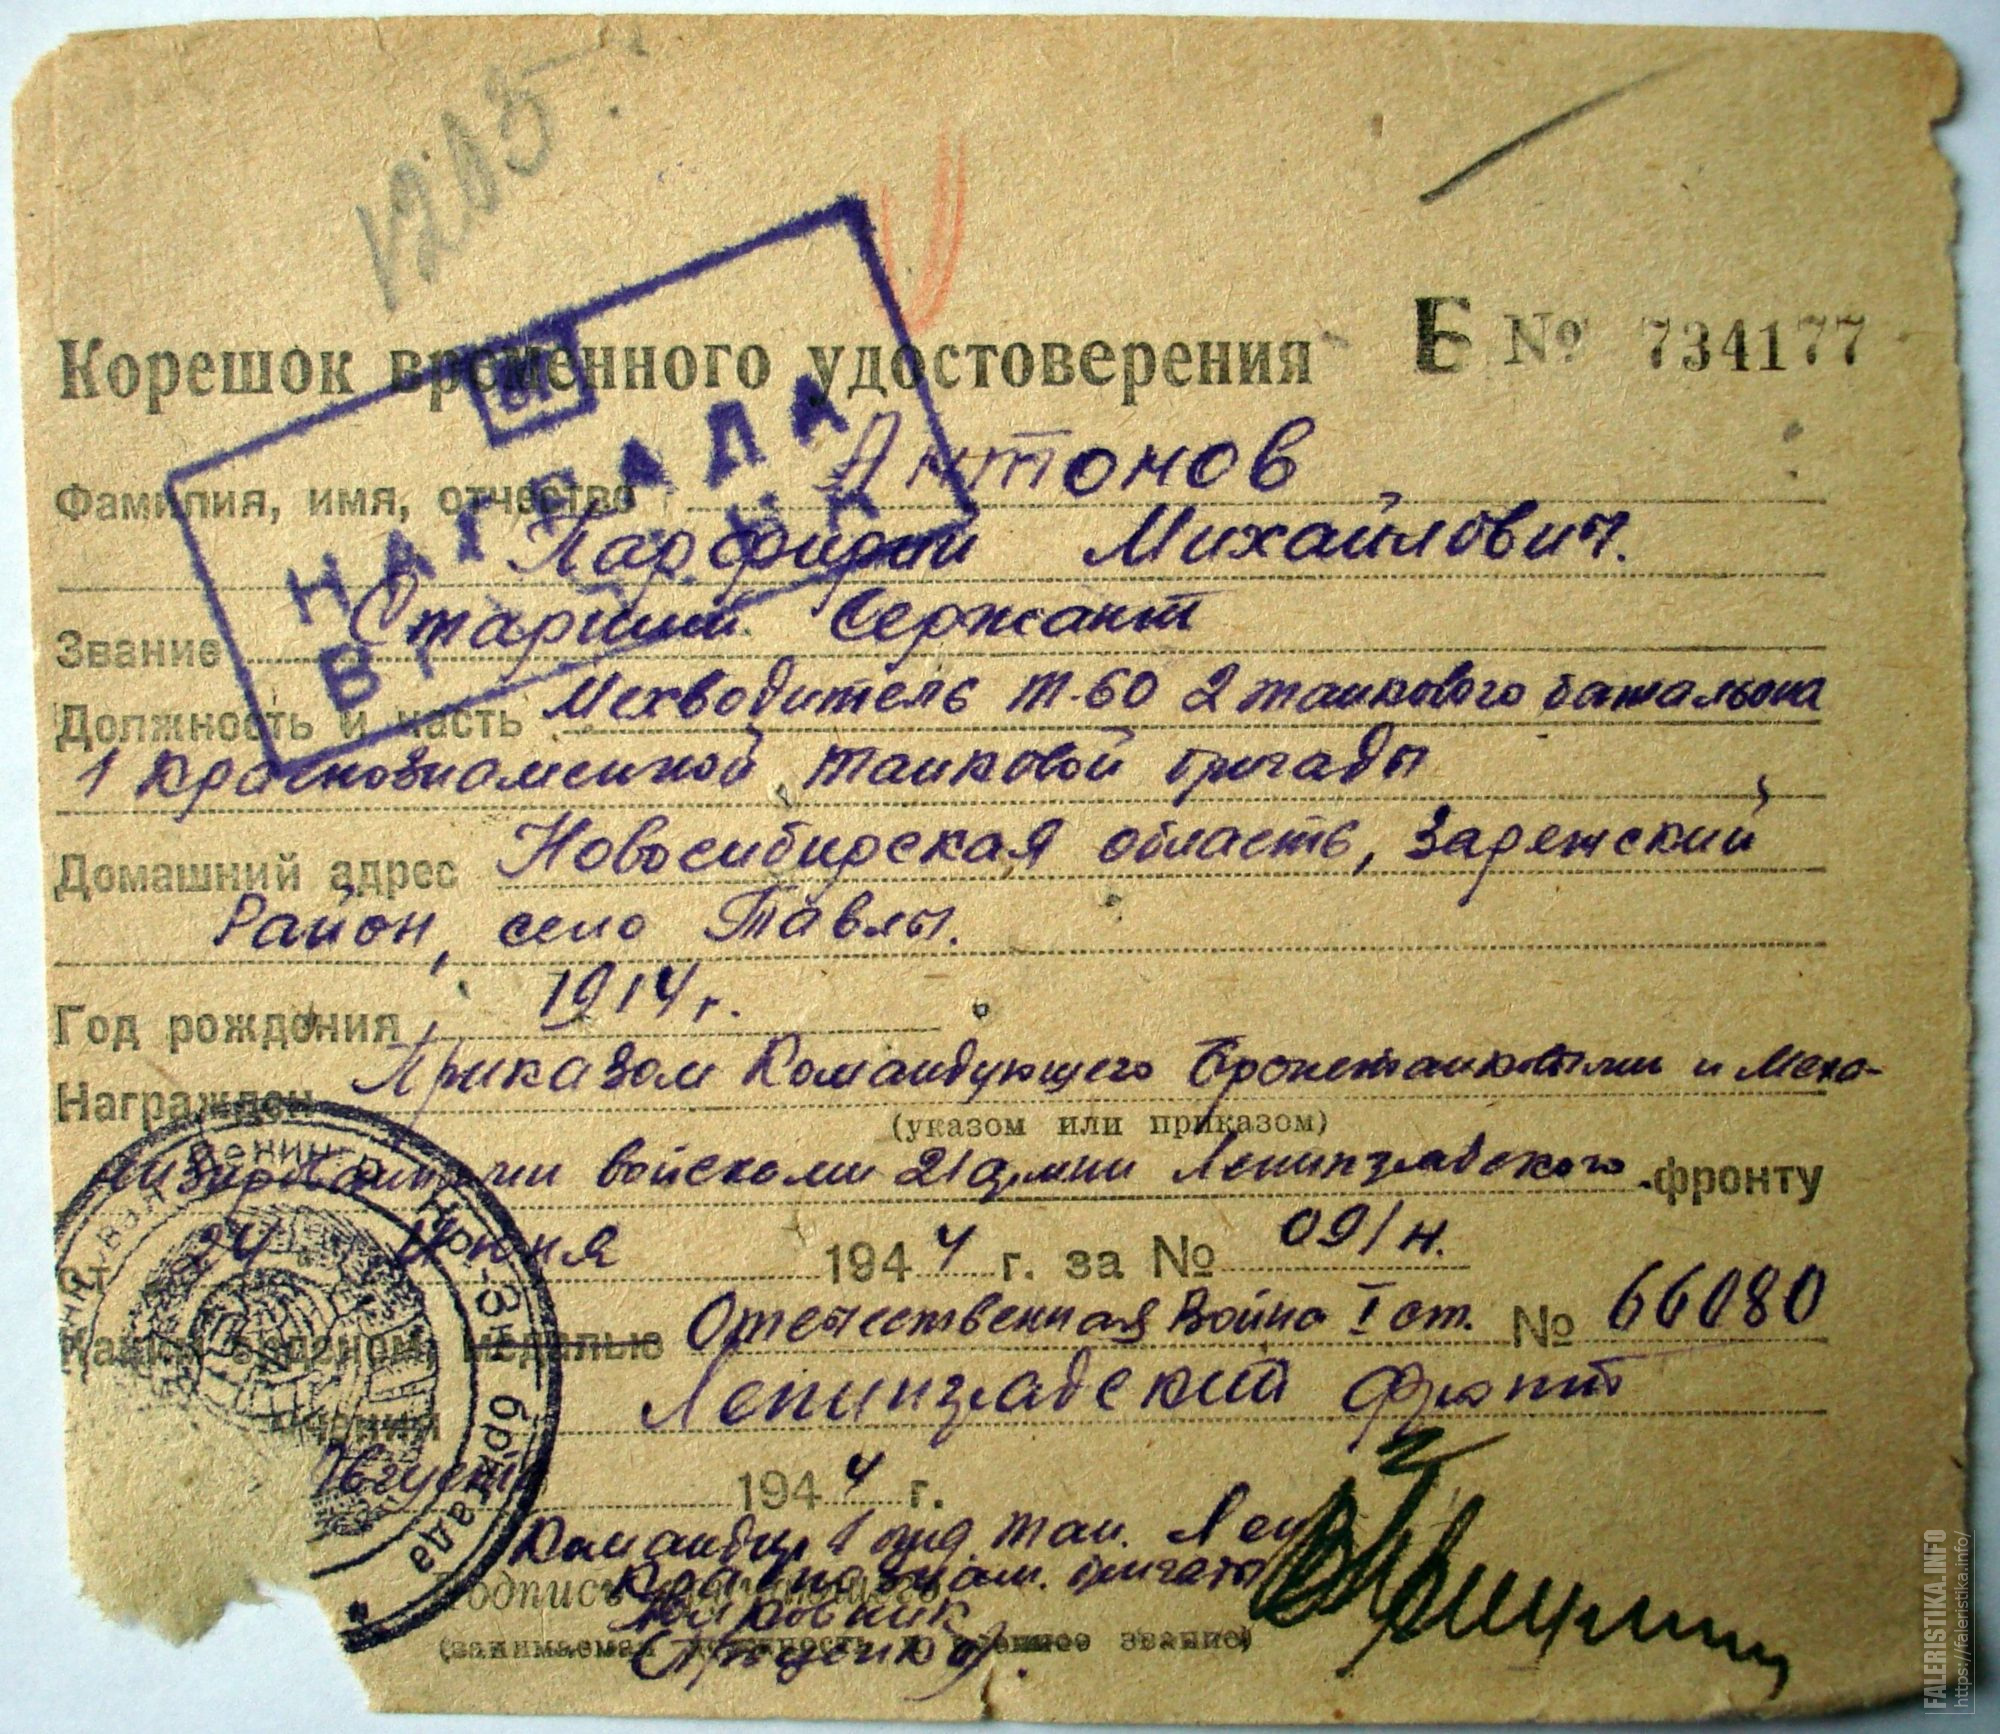 1205
Корешок временного удостоверения Б № 734177
Фамилия, имя, отчество Антонов
Парфирий Михайлович.
Звание Старший Сержант
Должность и часть Мехводитель Т-60 2 танкового батальона
1 Краснознаменной танковой бригады
Домашний адрес Новосибирская область,
Район, село Тавлы.
Год рождения 1914 г.
Награжден Приказом Командующего Бронетанковыми и Меха-
(указом или приказом)
низированными войсками 21 Армии Ленинградского фронту
от 24 Июня 1944 г. за № 091/н.
Каким орденом, медалью Отечественная Война I ст. № 66080
Ленинградский фронт
Августа 1944 г.
Командир 1 отд. тан. Лен.
Краснознам. бригады
Подпись
Полковник
(занимаемая должность и военное звание)
НАГРАДА
ВРУЧЕНА
FALERISTIKA.INFO
https://faleristika.info/